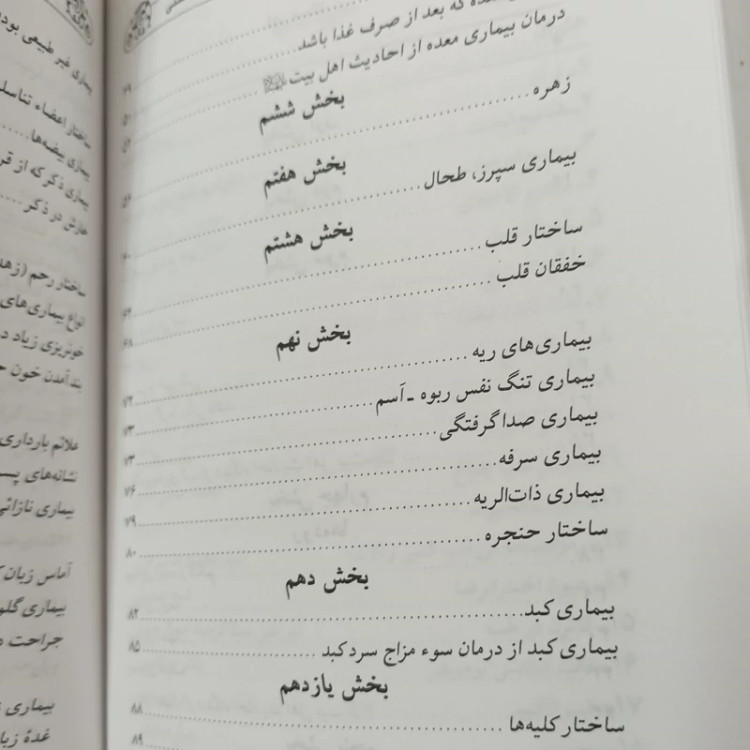 ده که بعد از صرف غذا باشد ........ ۴۹
درمان بیماری معده از احادیث اهل بیت ........ ۵۰
بخش ششم
زهره ........ ۵۲
بخش هفتم
بیماری سپرز، طحال ........ ۵۶
بخش هشتم
ساختار قلب ........ ۶۰
خفقان قلب ........ ۶۴
۶۸
بخش نهم
بیماری‌های ریه ........ ۷۲
بیماری تنگ نفس ربوه - آسم ........ ۷۳
بیماری صدا گرفتگی ........ ۷۳
بیماری سرفه ........ ۷۶
بیماری ذات‌الریه ........ ۷۹
ساختار حنجره ........ ۸۰
بخش دهم
بیماری کبد ........ ۸۲
بیماری کبد از درمان سوء مزاج سرد کبد ........ ۸۵
بخش یازدهم
ساختار کلیه‌ها ........ ۸۸
۸۹
بیماری غیر طبیعی بود
ساختار اعضاء تناسل
بیماری بیضه‌ها ........
بیماری ذکر که از قر
خارش در ذکر ........
ساختار رحم (زهد
انواع بیماری‌های
خونریزی زیاد د
بند آمدن خون ح
علائم بارداری
نشانه‌های پس
بیماری نازائی
آماس زبان ک
بیماری گلو
جراحت د
بیماری ز
غدهٔ زبا